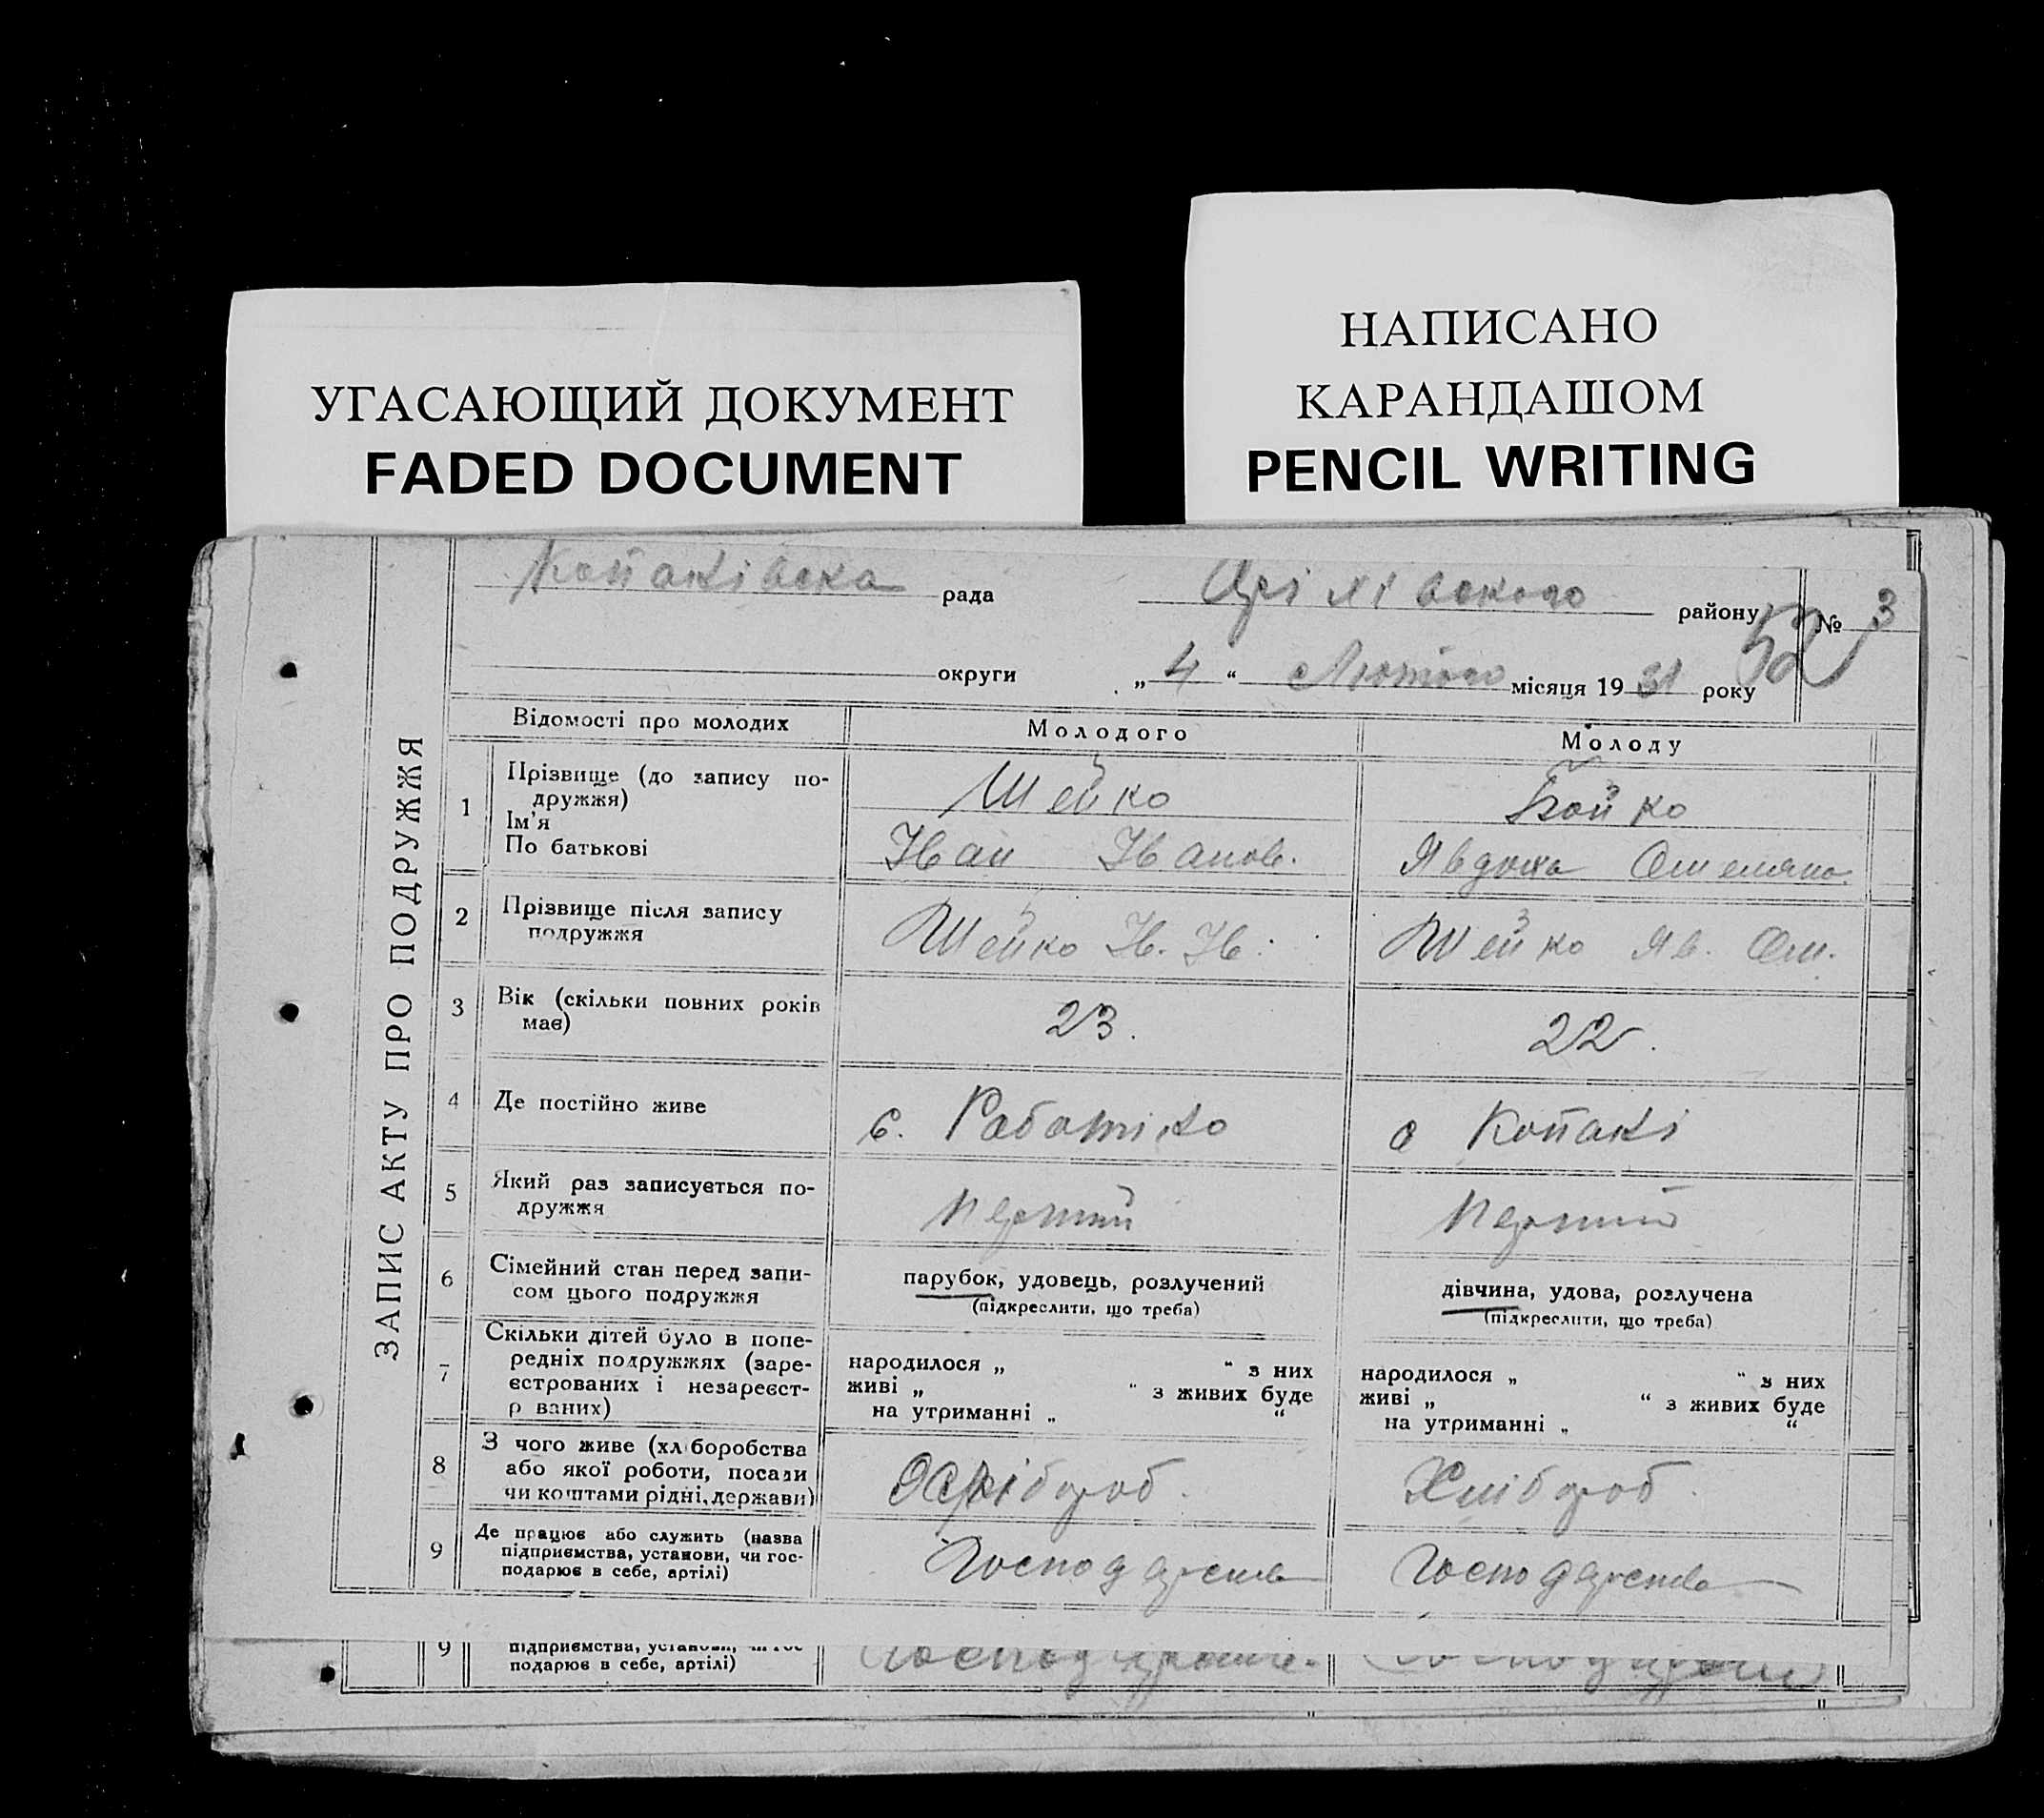 УГАСАЮЩИЙ ДОКУМЕНТ
FADED DOCUMENT
НАПИСАНО
КАРАНДАШОМ
PENCIL WRITING
ЗАПИС АКТУ ПРО ПОДРУЖЖЯ
Копаківска рада району № 3
52
округи „ 4 “ Лютого місяця 19 31 року
Відомості про молодих Молодого Молоду
1 Прізвище (до запису по-
дружжя) Шейко Бойко
Ім'я
По батькові Іван Іванов. Явдоха Омеляно.
2 Прізвище після запису
подружжя Шейко Ів. Ів. Шейко Яв. Ом.
3 Вік (скільки повних років
має) 23. 22.
4 Де постійно живе с. с Копакі
5 Який раз записується по-
дружжя перший перший
6 Сімейний стан перед запи-
сом цього подружжя парубок, удовець, розлучений дівчина, удова, розлучена
(підкреслити, що треба) (підкреслити, що треба)
7 Скільки дітей було в попе-
редніх подружжях (заре-
єстрованих і незареєст-
р ваних)
народилося „ “ з них
живі „ “ з живих буде
на утриманні „ “
народилося „ “ з них
живі „ “ з живих буде
на утриманні „ “
8 З чого живе (хл боробства
або якої роботи, посади
чи коштами рідні, держави) Хлібороб
9 Де працює або служить (назва
підприємства, установи, чи гос-
подарює в себе, артілі)
9 підприємства, установи, чи гос-
подарює в себе, артілі)